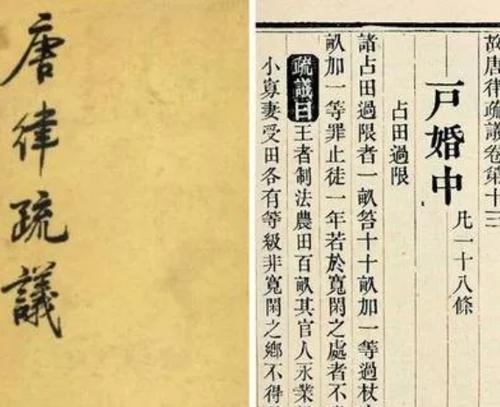 唐律疏議
故唐律疏議卷第十三
戶婚中
凡一十八條
占田過限
諸占田過限者一畝笞十十畝加一等過杖
畝加一等罪止徒一年若於寬閑之處者不
疏議曰王者制法農田百畝其官人永業
小寡妻受田各有等級非寬閑之鄉不得